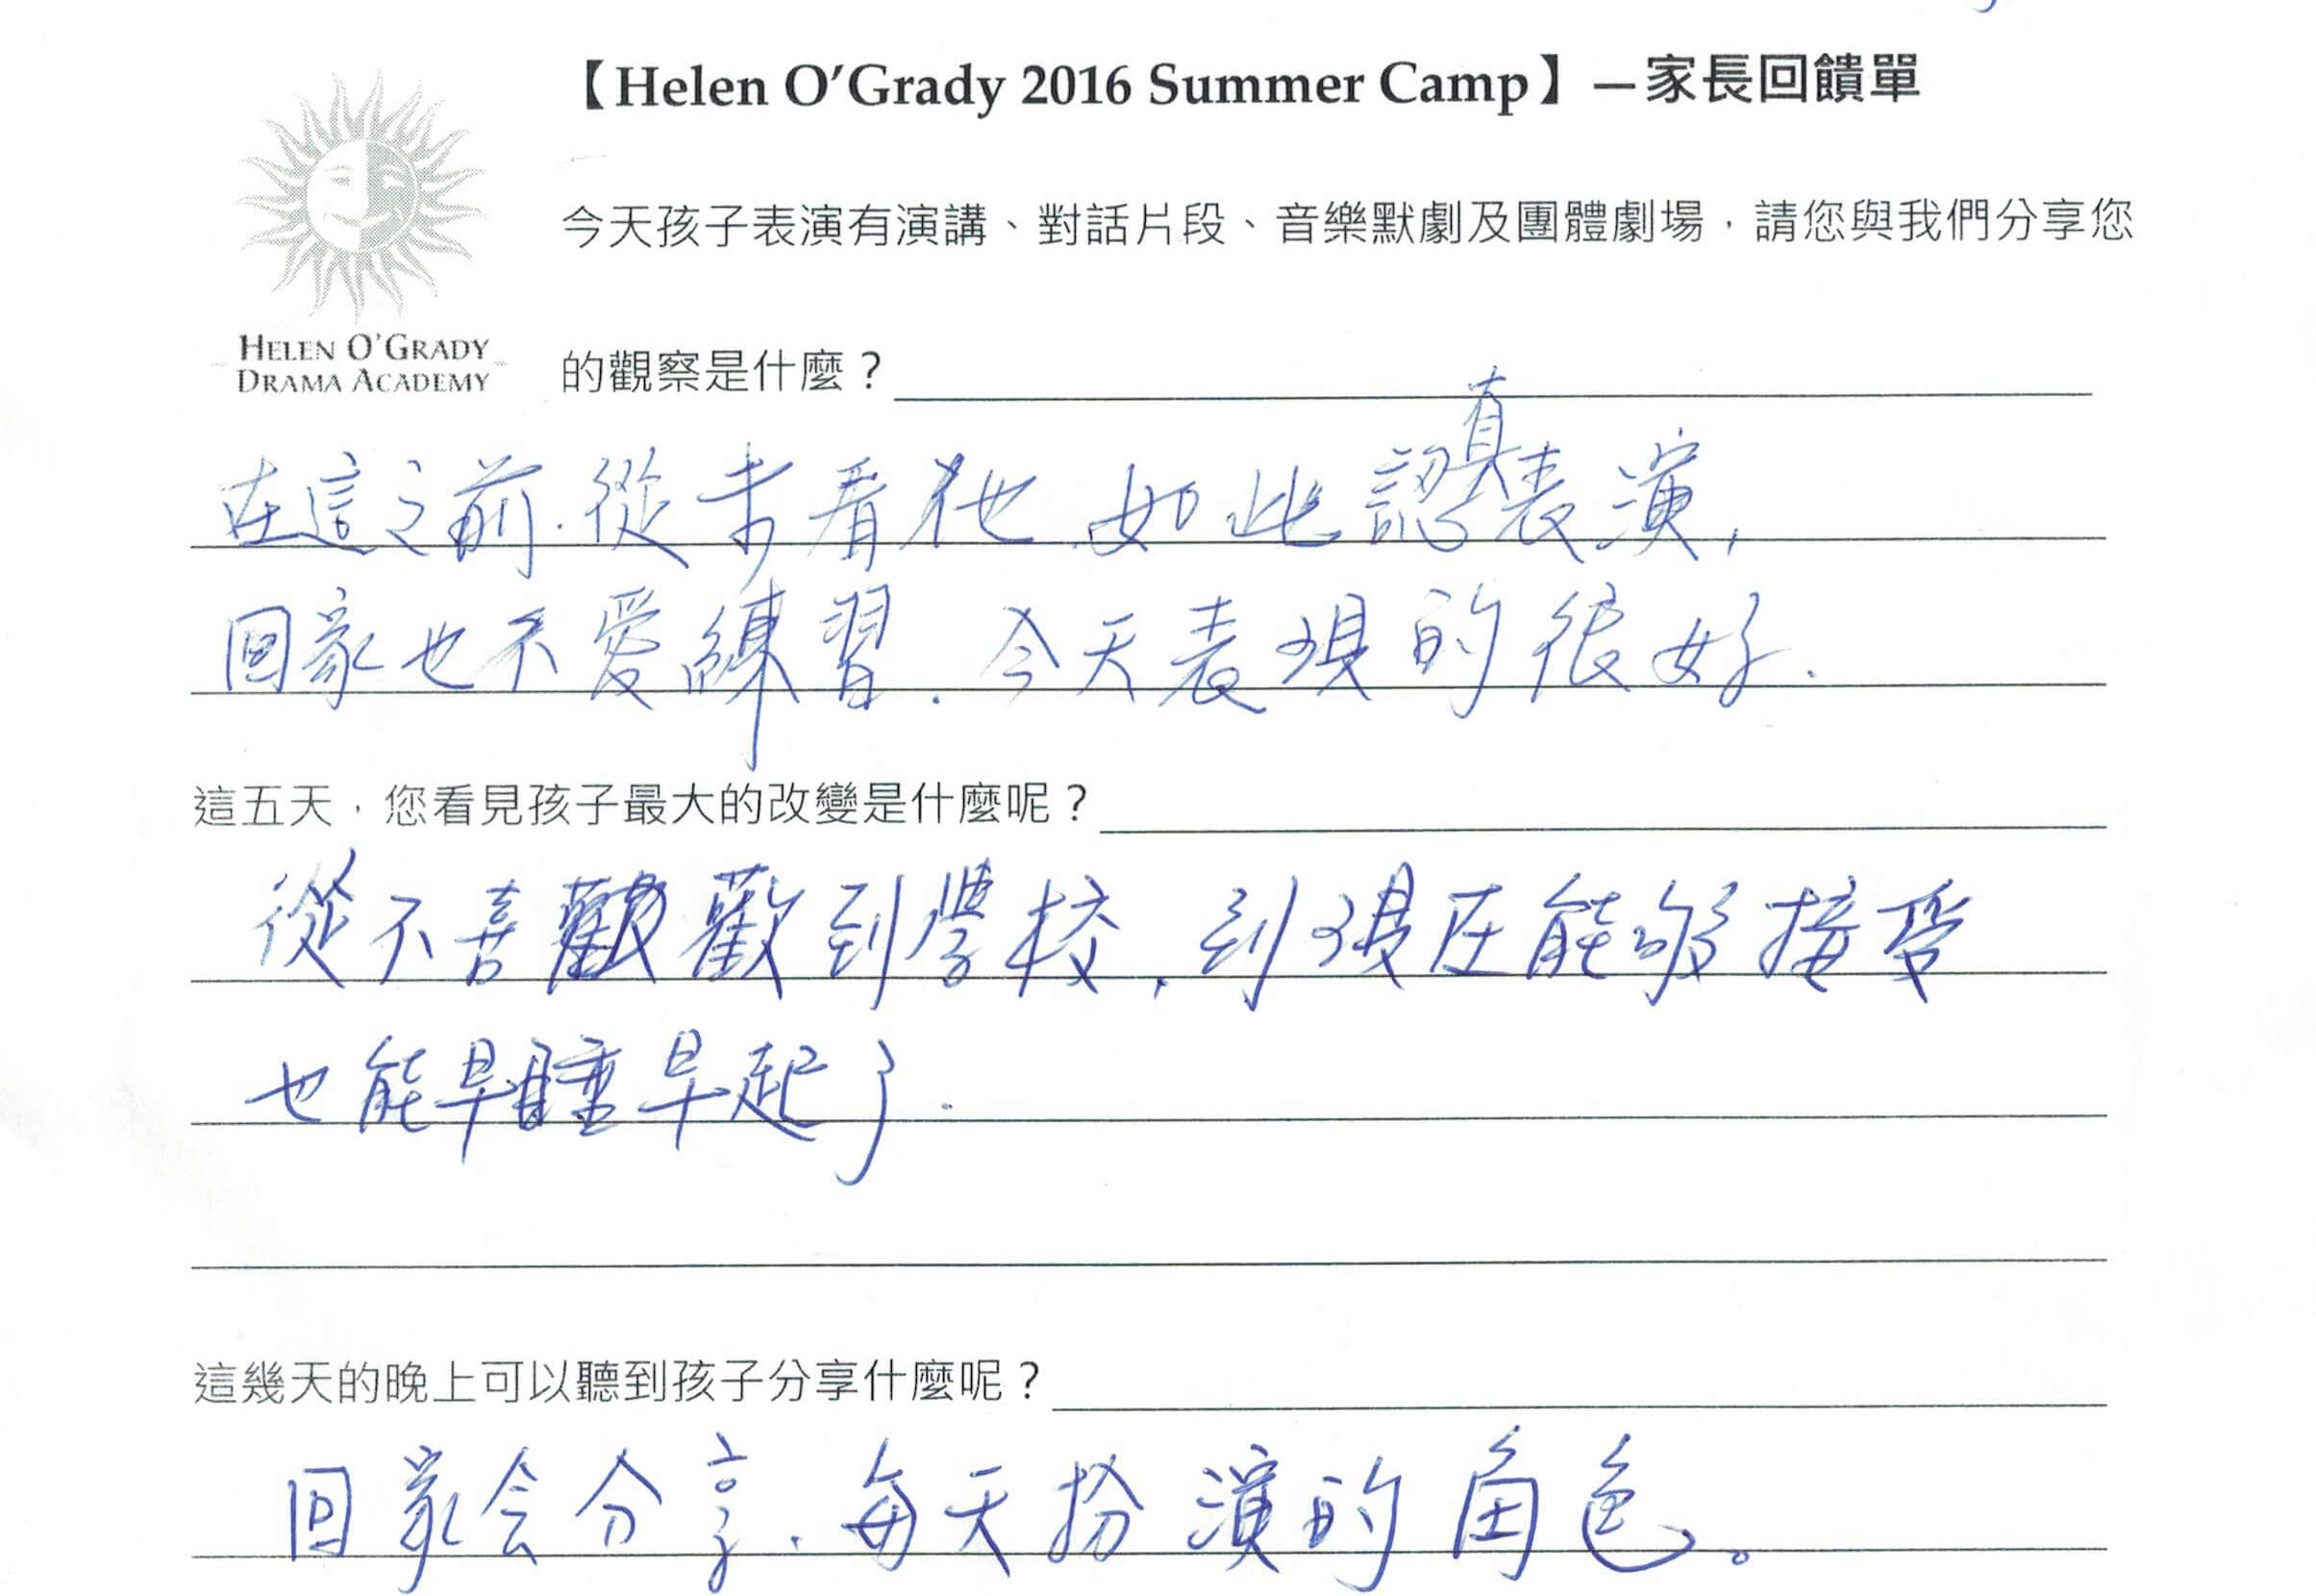 【Helen O'Grady 2016 Summer Camp】—家長回饋單
今天孩子表演有演講、對話片段、音樂默劇及團體劇場，請您與我們分享您
HELEN O'GRADY
DRAMA ACADEMY
的觀察是什麼？
在這之前.從未看他如此認真表演,
回家也不愛練習.今天表現的很好.
這五天，您看見孩子最大的改變是什麼呢？
從不喜歡到學校,到現在能够接受
也能早睡早起了.
這幾天的晚上可以聽到孩子分享什麼呢？
回家会分享.每天扮演的角色。